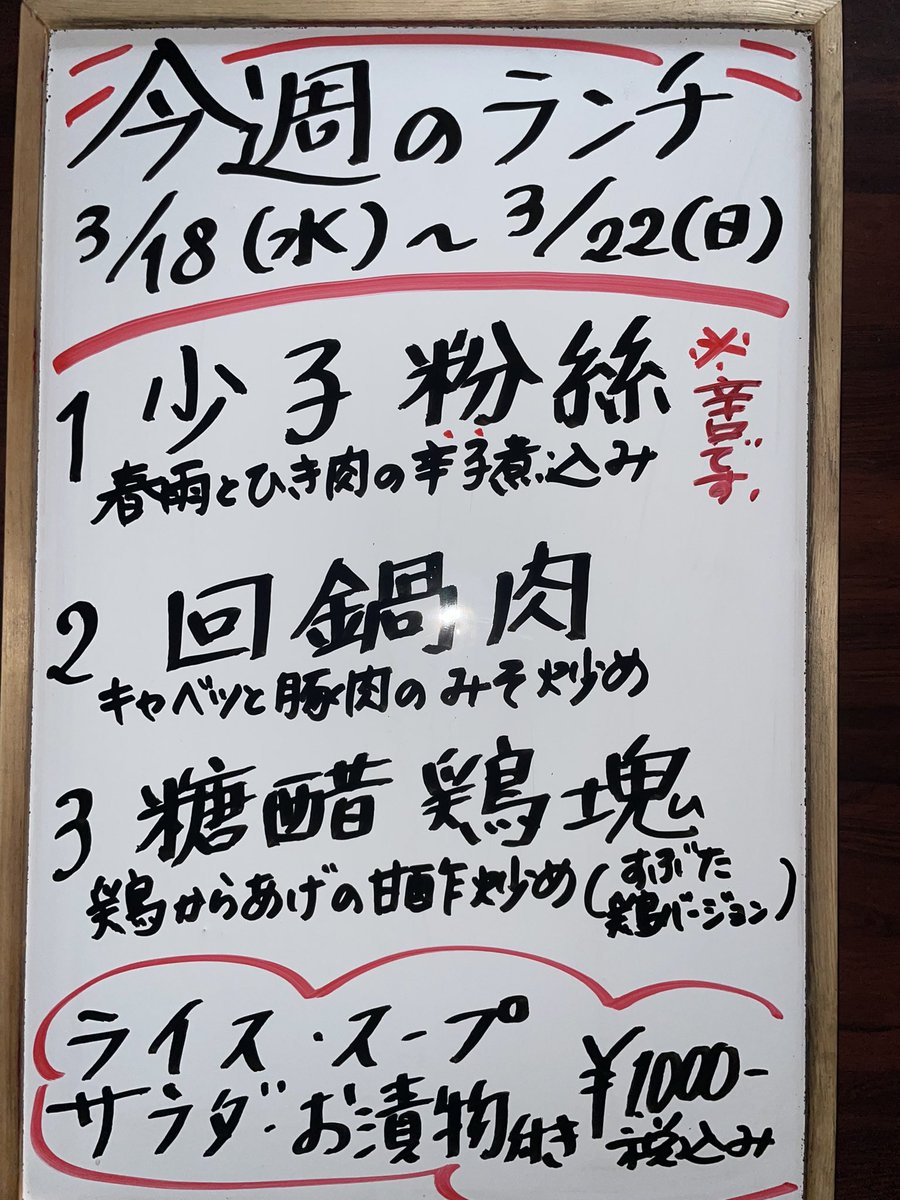 今週のランチ
3/18(水)～3/22(日)
1 少子粉絲
※辛口です。
春雨とひき肉の辛子煮込み
2 回鍋肉
キャベツと豚肉のみそ炒め
3 糖醋鶏塊
鶏からあげの甘酢炒め(すぶた鶏バージョン)
ライス・スープ
サラダ・お漬物付き
¥1000-
税込み